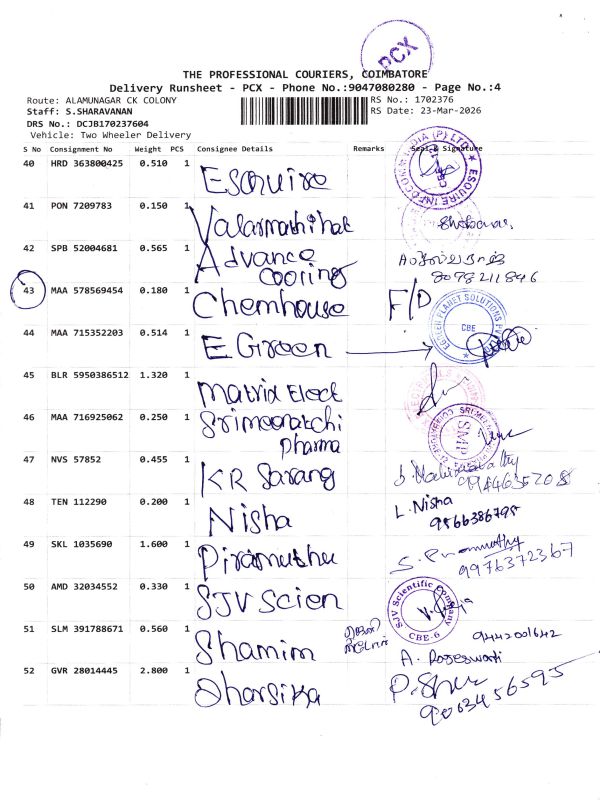 PCX
THE PROFESSIONAL COURIERS, COIMBATORE
Delivery Runsheet - PCX - Phone No.:9047080280 - Page No.:4
Route: ALAMUNAGAR CK COLONY RS No.: 1702376
Staff: S.SHARAVANAN RS Date: 23-Mar-2026
DRS No.: DCJB170237604
Vehicle: Two Wheeler Delivery
S No Consignment No Weight PCS Consignee Details Remarks Seal & Signature
40 HRD 363800425 0.510 1 Esquire
41 PON 7209783 0.150 1 Valarmathi
42 SPB 52004681 0.565 1 Advance
cooring
8098211846
43 MAA 578569454 0.180 1 Chemhouse F/D
44 MAA 715352203 0.514 1 E Green EGREEN PLANET SOLUTIONS CBE
45 BLR 5950386512 1.320 1 Matrix Elect
46 MAA 716925062 0.250 1 Srimeenatchi
pharma SMP
47 NVS 57852 0.455 1 KR Sarang
48 TEN 112290 0.200 1 Nisha L. Nisha
9566386795
49 SKL 1035690 1.600 1 Piramuthu
9976372367
50 AMD 32034552 0.330 1 SJV Scien SJV Scientific Company CBE-6
51 SLM 391788671 0.560 1 Shamim 9442001642
A. Rogeswari
52 GVR 28014445 2.800 1 Sharsika
9063456595